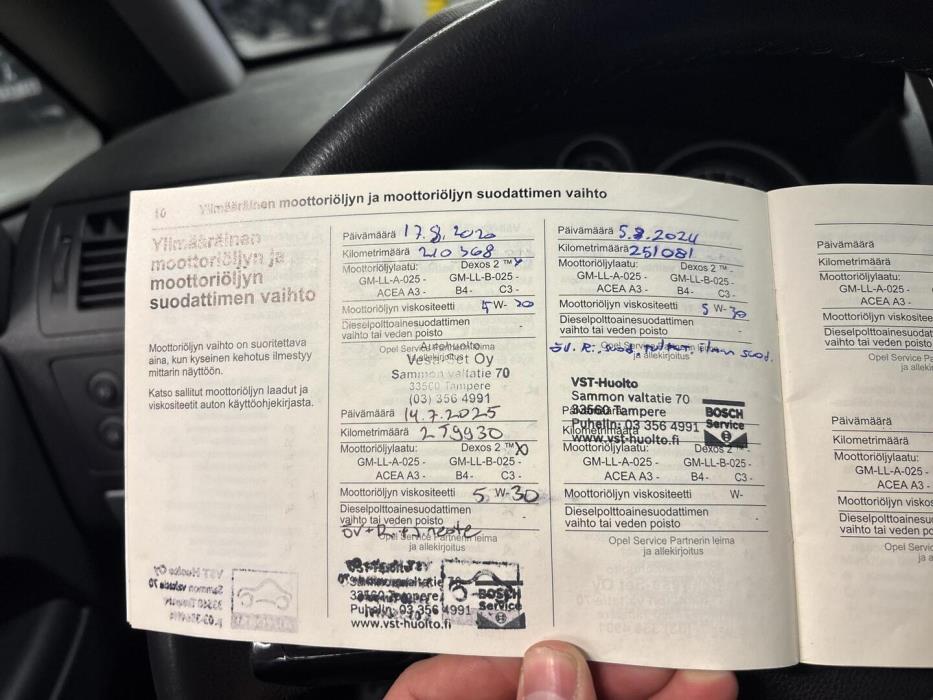 10 Ylimääräinen moottoriöljyn ja moottoriöljyn suodattimen vaihto
Ylimääräinen
moottoriöljyn ja
moottoriöljyn
suodattimen vaihto
Moottoriöljyn vaihto on suoritettava
aina, kun kyseinen kehotus ilmestyy
mittarin näyttöön.
Katso sallitut moottoriöljyn laadut ja
viskositeetit auton käyttöohjekirjasta.
Päivämäärä 17.8.2020
Kilometrimäärä 210 368
Moottoriöljylaatu: Dexos 2 ™ x
GM-LL-A-025 - GM-LL-B-025 -
ACEA A3 - B4 - C3 -
Moottoriöljyn viskositeetti 5 W- 30
Dieselpolttoainesuodattimen
vaihto tai veden poisto -
Opel Service Partnerin leima
ja allekirjoitus
Autohuolto
Vesa Oy
Sammon valtatie 70
33560 Tampere
(03) 356 4991
Päivämäärä 14.7.2025
Kilometrimäärä 279930
Moottoriöljylaatu: Dexos 2 ™ x
GM-LL-A-025 - GM-LL-B-025 -
ACEA A3 - B4 - C3 -
Moottoriöljyn viskositeetti 5 W- 30
Dieselpolttoainesuodattimen
vaihto tai veden poisto -
ÖV+R+J.neste
Opel Service Partnerin leima
ja allekirjoitus
VST-Huolto
Sammon valtatie 70
33560 Tampere
Puhelin: 03 356 4991
www.vst-huolto.fi
BOSCH
Service
Päivämäärä 5.8.2024
Kilometrimäärä 251081
Moottoriöljylaatu: Dexos 2 ™ -
GM-LL-A-025 - GM-LL-B-025 -
ACEA A3 - B4 - C3 -
Moottoriöljyn viskositeetti 5 W- 30
Dieselpolttoainesuodattimen
vaihto tai veden poisto -
Opel Service Partnerin leima
ja allekirjoitus
ÖV. R., ilman suod.
VST-Huolto
Sammon valtatie 70
33560 Tampere
Puhelin: 03 356 4991
www.vst-huolto.fi
BOSCH
Service
Päivämäärä
Kilometrimäärä
Moottoriöljylaatu: Dexos 2 ™ -
GM-LL-A-025 - GM-LL-B-025 -
ACEA A3 - B4 - C3 -
Moottoriöljyn viskositeetti W-
Dieselpolttoainesuodattimen
vaihto tai veden poisto -
Opel Service Partnerin leima
ja allekirjoitus
Päivämäärä
Kilometrimäärä
Moottoriöljylaatu:
GM-LL-A-025 -
ACEA A3 -
Moottoriöljyn viskositee
Dieselpolttoainesuodatt
vaihto tai veden poisto
Opel Service Part
ja allekir
Päivämäärä
Kilometrimäärä
Moottoriöljylaatu:
GM-LL-A-025 -
ACEA A3 -
Moottoriöljyn viskos
Dieselpolttoainesuo
vaihto tai veden poi
Opel Servic
ja a